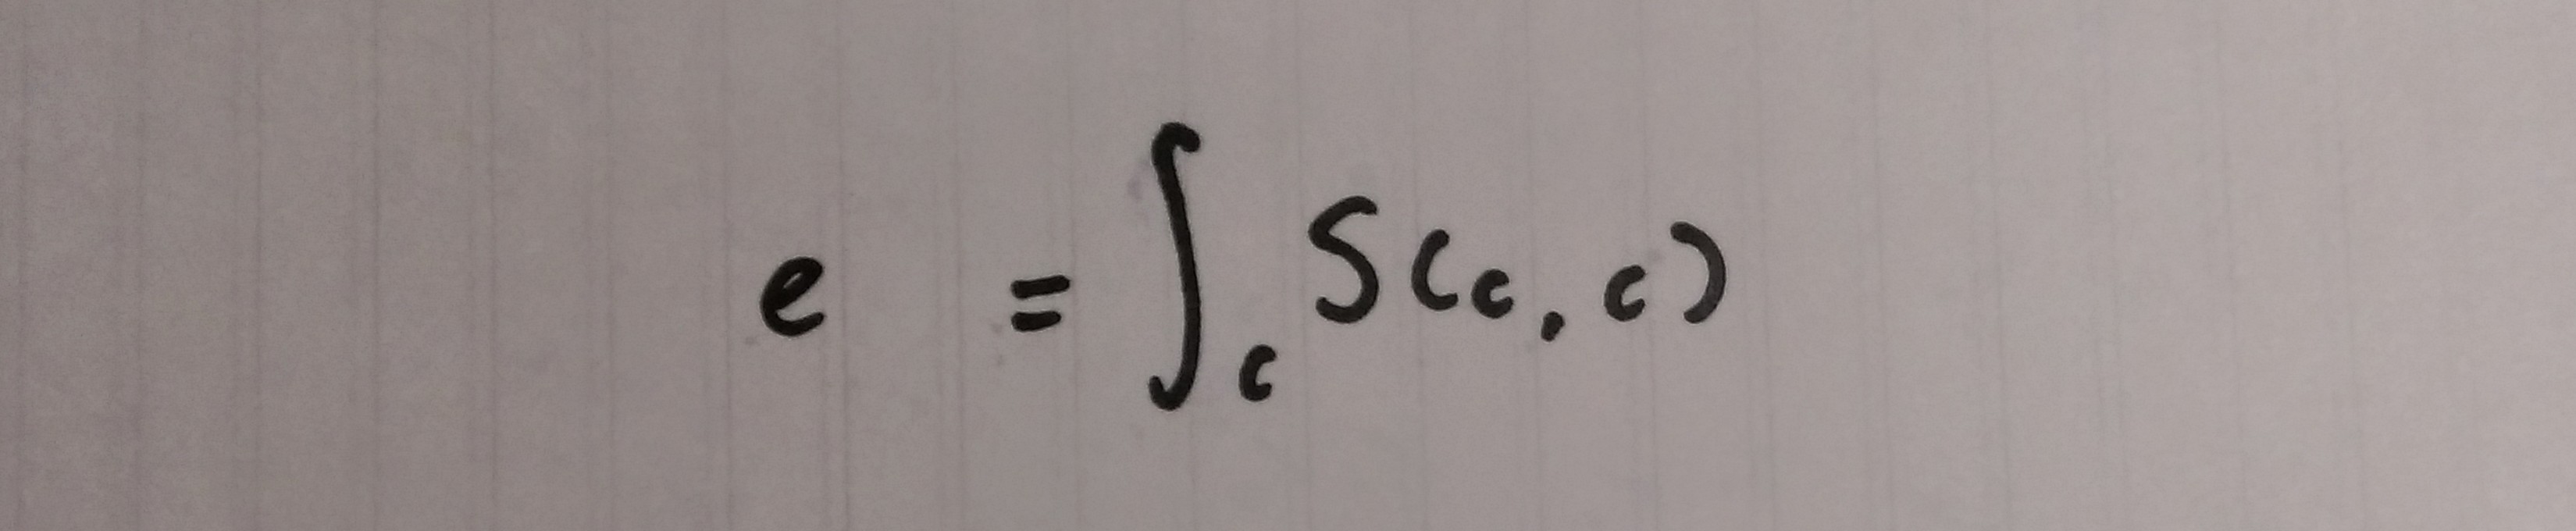 e = ∫c S(c, c)